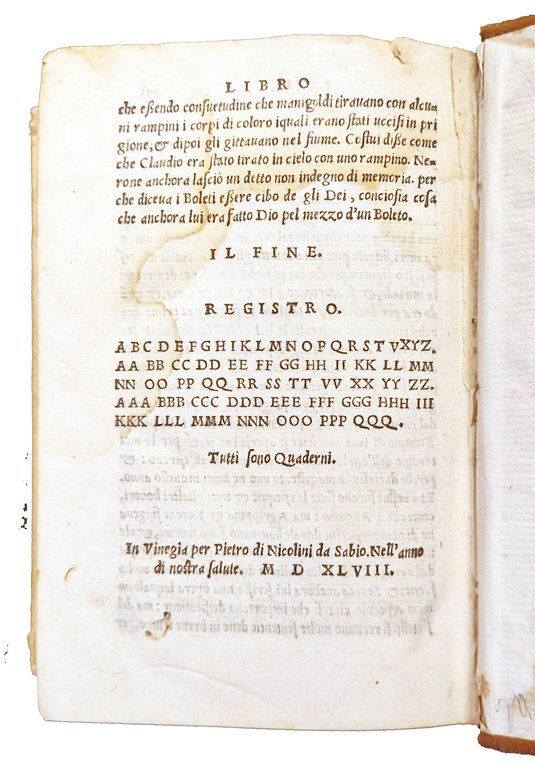 LIBRO
che eßendo consuetudine che manigoldi tirauano con alcu-
ni rampini i corpi di coloro iquali erano stati uccisi in pri
gione, & dipoi gli gittauano nel fiume. Costui diße come
che Claudio era stato tirato in cielo con uno rampino. Ne-
rone anchora lasciò un detto non indegno di memoria. per
che diceua i Boleti eßere cibo de gli Dei, conciosia cosa
che anchora lui era fatto Dio pel mezzo d'un Boleto.
IL FINE.
REGISTRO.
A B C D E F G H I K L M N O P Q R S T V X Y Z.
AA BB CC DD EE FF GG HH II KK LL MM
NN OO PP QQ RR SS TT VV XX YY ZZ.
AAA BBB CCC DDD EEE FFF GGG HHH III
KKK LLL MMM NNN OOO PPP QQQ.
Tutti sono Quaderni.
In Vinegia per Pietro di Nicolini da Sabio. Nell'anno
di nostra salute. M D XLVIII.